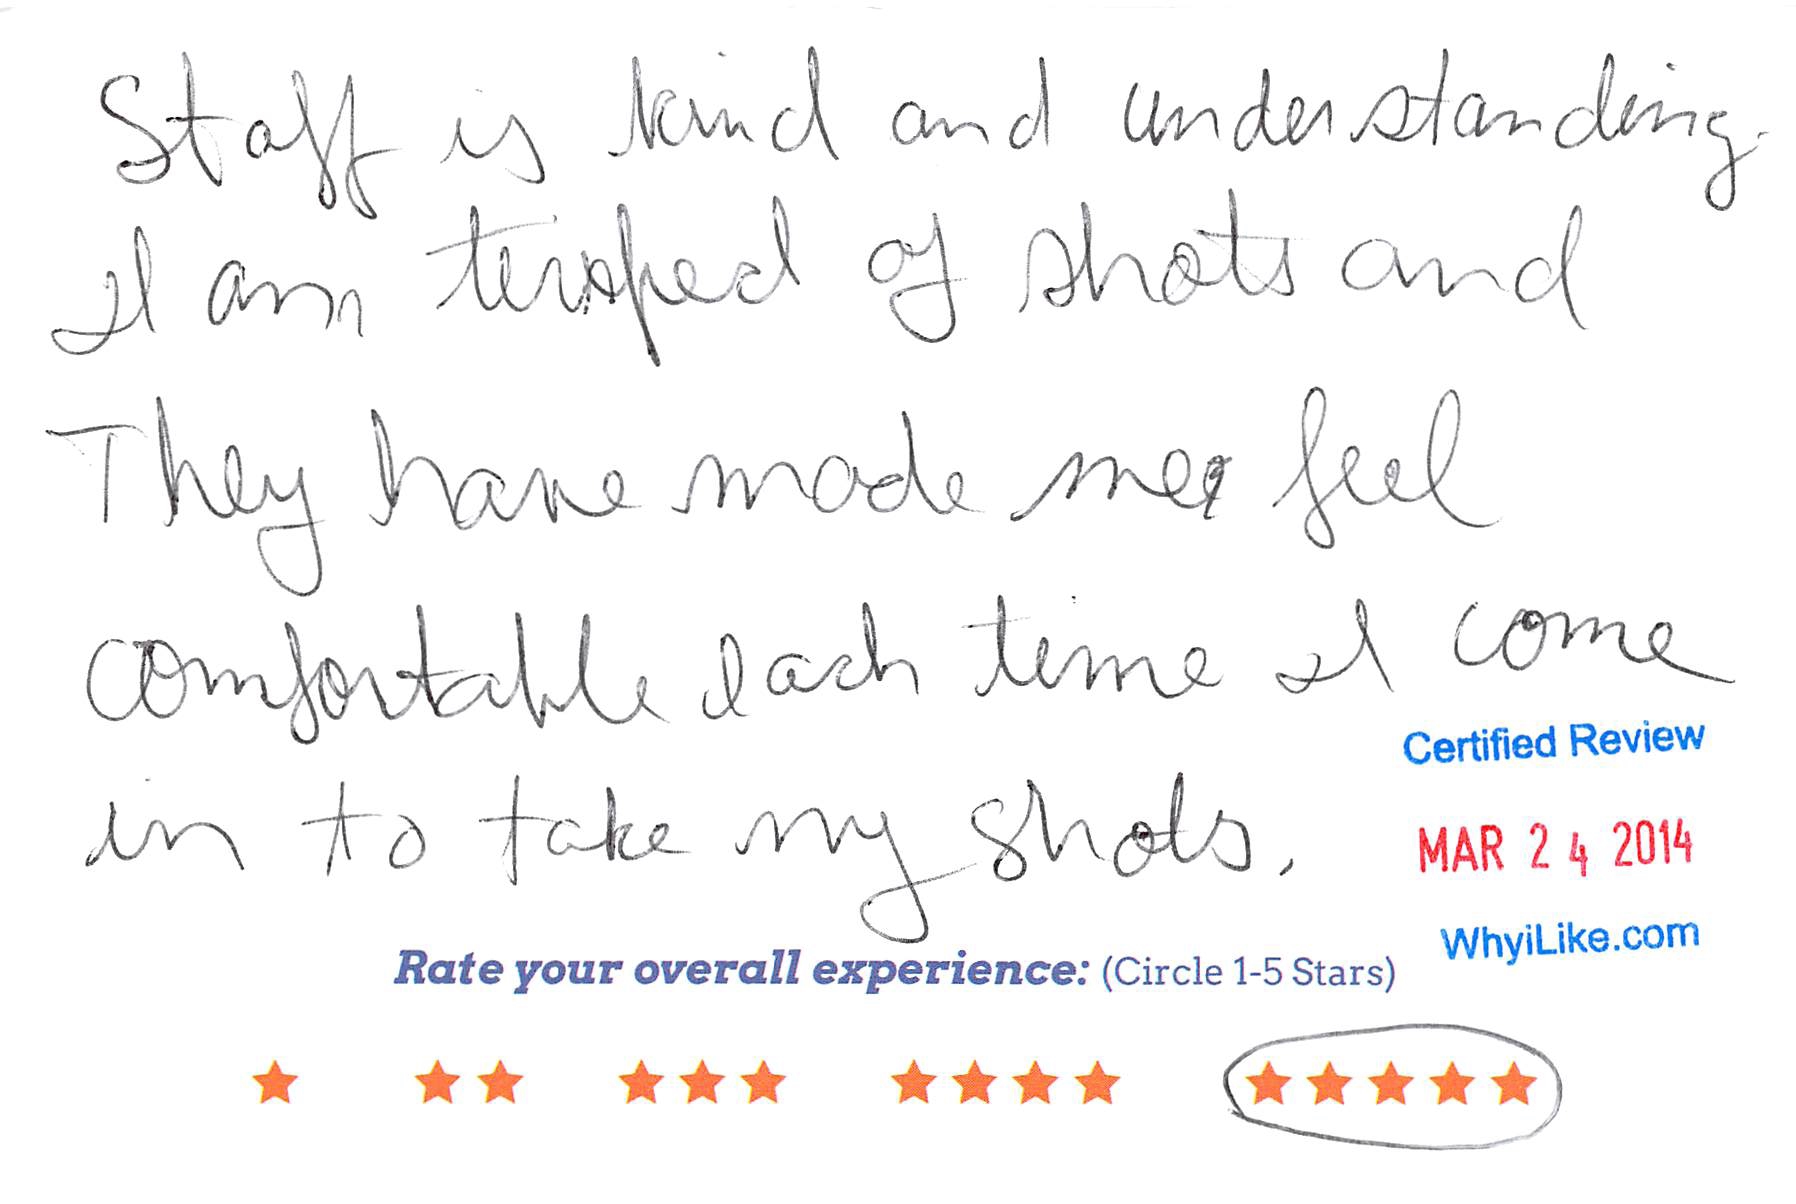 Staff is kind and understanding.
I am terrified of shots and
They have made me feel
comfortable each time I come
in to take my shots.
Certified Review
MAR 24 2014
WhyiLike.com
Rate your overall experience: (Circle 1-5 Stars)